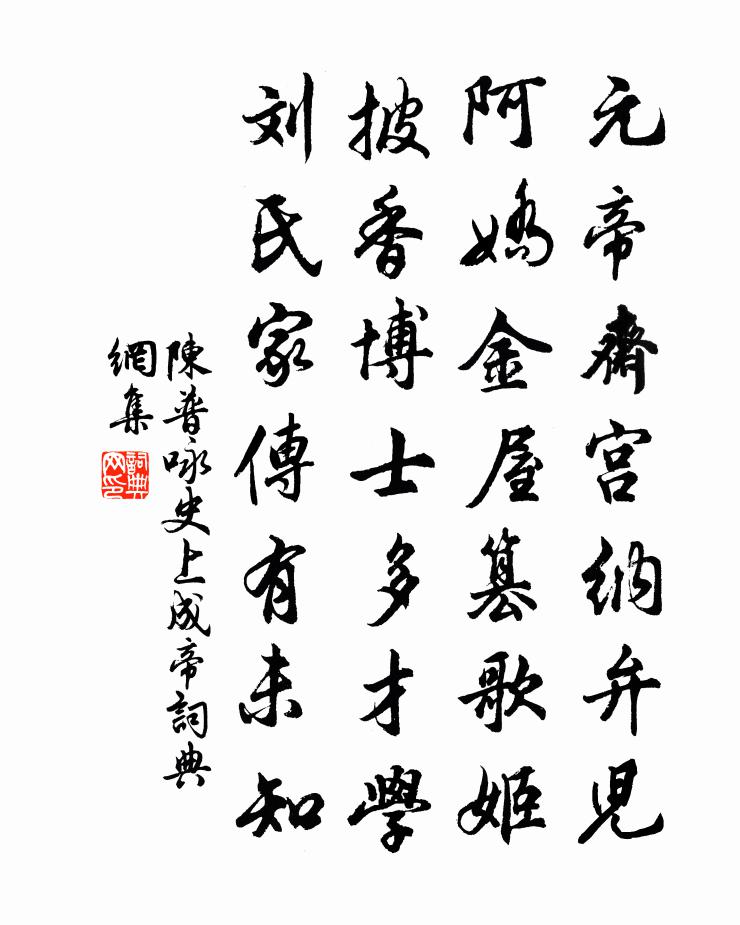 元帝齋宫納弁児
阿嬌金屋篡歌姬
披香博士多才學
刘氏家傳有未知
陳普咏史上成帝詞典
網集
詞典網印